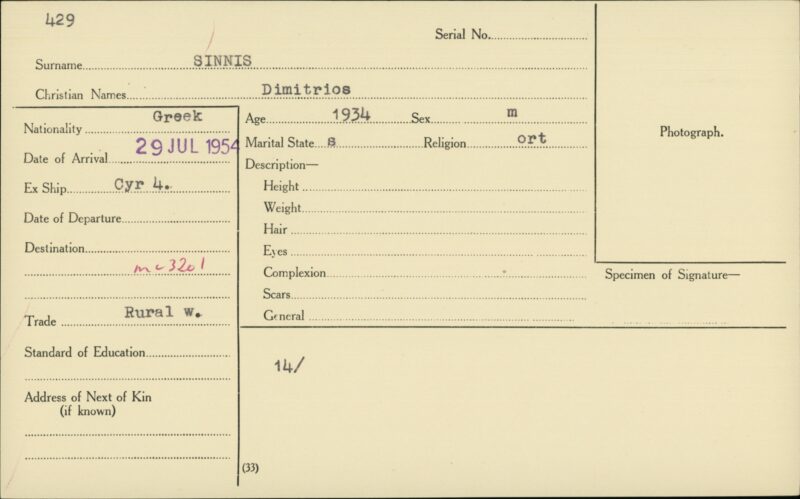 429
Serial No.
Surname SINNIS
Christian Names Dimitrios
Nationality Greek
Date of Arrival 29 JUL 1954
Ex Ship Cyr 4.
Date of Departure
Destination
mc3201
Trade Rural w.
Standard of Education
Address of Next of Kin
(if known)
Age 1934 Sex m
Marital State s Religion ort
Description—
Height
Weight
Hair
Eyes
Complexion
Scars
General
14/
(33)
Photograph.
Specimen of Signature—